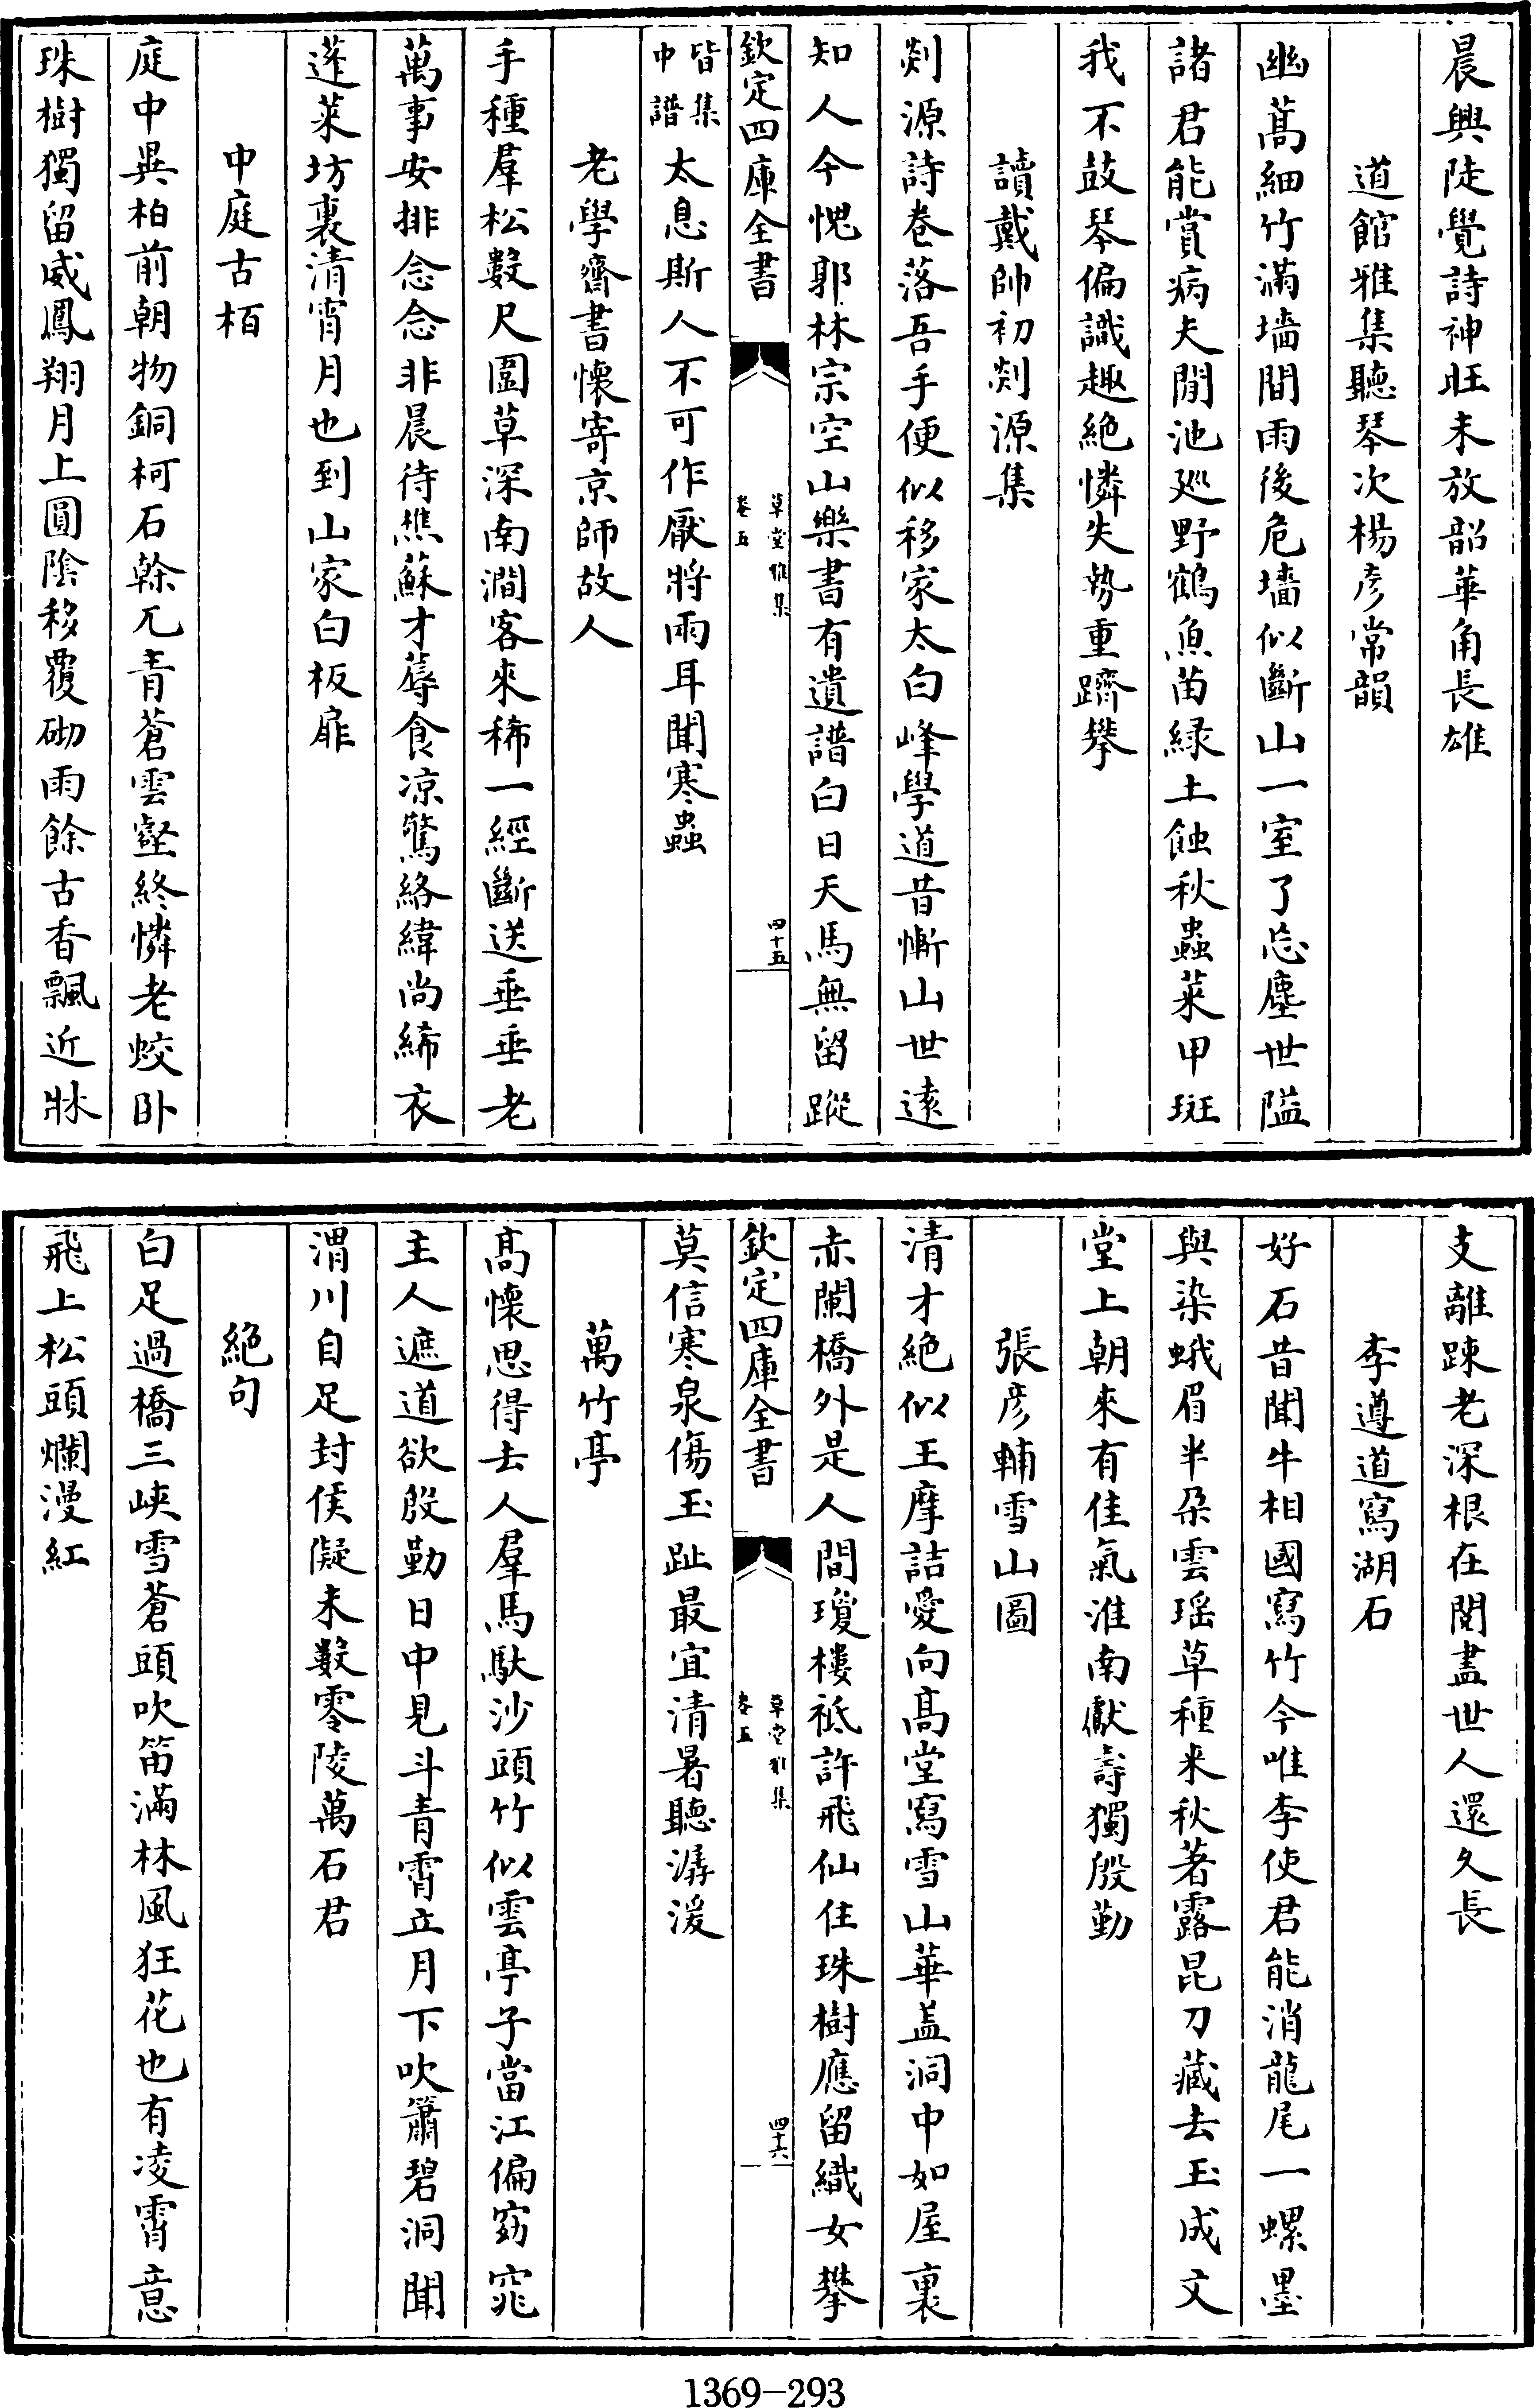 晨興陡覺詩神旺未放韶華角長雄
道館雅集聽琴次楊彥常韻
幽蒿細竹滿墻間雨後危墻似斷山一室了忘塵世隘
諸君能賞病夫閒池廵野鶴魚苗緑土蝕秋蟲菜甲斑
我不鼓琴偏識趣絶憐失勢重躋攀
讀戴帥初剡源集
剡源詩卷落吾手便似移家太白峰學道昔慚山世遠
知人今愧郭林宗空山樂書有遺譜白日天馬無留蹤
欽定四庫全書
草堂雅集
卷五
四十五
皆集
中譜
太息斯人不可作厭將雨耳聞寒蟲
老學齋書懷寄京師故人
手種羣松數尺圍草深南澗客來稀一經斷送垂垂老
萬事安排念念非晨待樵蘇才蓐食凉驚絡緯尚絺衣
蓬萊坊裏清宵月也到山家白板扉
中庭古栢
庭中異柏前朝物銅柯石榦兀青蒼雲壑終憐老蛟卧
珠樹獨留威鳳翔月上圓陰移覆砌雨餘古香飄近牀
支離踈老深根在閱盡世人還久長
李遵道寫湖石
好石昔聞牛相國寫竹今唯李使君能消龍尾一螺墨
與染蛾眉半朵雲瑶草種来秋著露昆刀藏去玉成文
堂上朝來有佳氣淮南獻壽獨殷勤
張彥輔雪山圖
清才絶似王摩詰愛向髙堂寫雪山華盖洞中如屋裏
赤闌橋外是人間瓊樓祗許飛仙住珠樹應留織女攀
欽定四庫全書
草堂雅集
卷五
四十六
莫信寒泉傷玉趾最宜清暑聽潺湲
萬竹亭
髙懷思得去人羣馬馱沙頭竹似雲亭子當江偏窈窕
主人遮道欲殷勤日中見斗青霄立月下吹簫碧洞聞
渭川自足封侯儗未數零陵萬石君
絶句
白足過橋三峽雪蒼頭吹笛滿林風狂花也有凌霄意
飛上松頭爛漫紅
1369-293